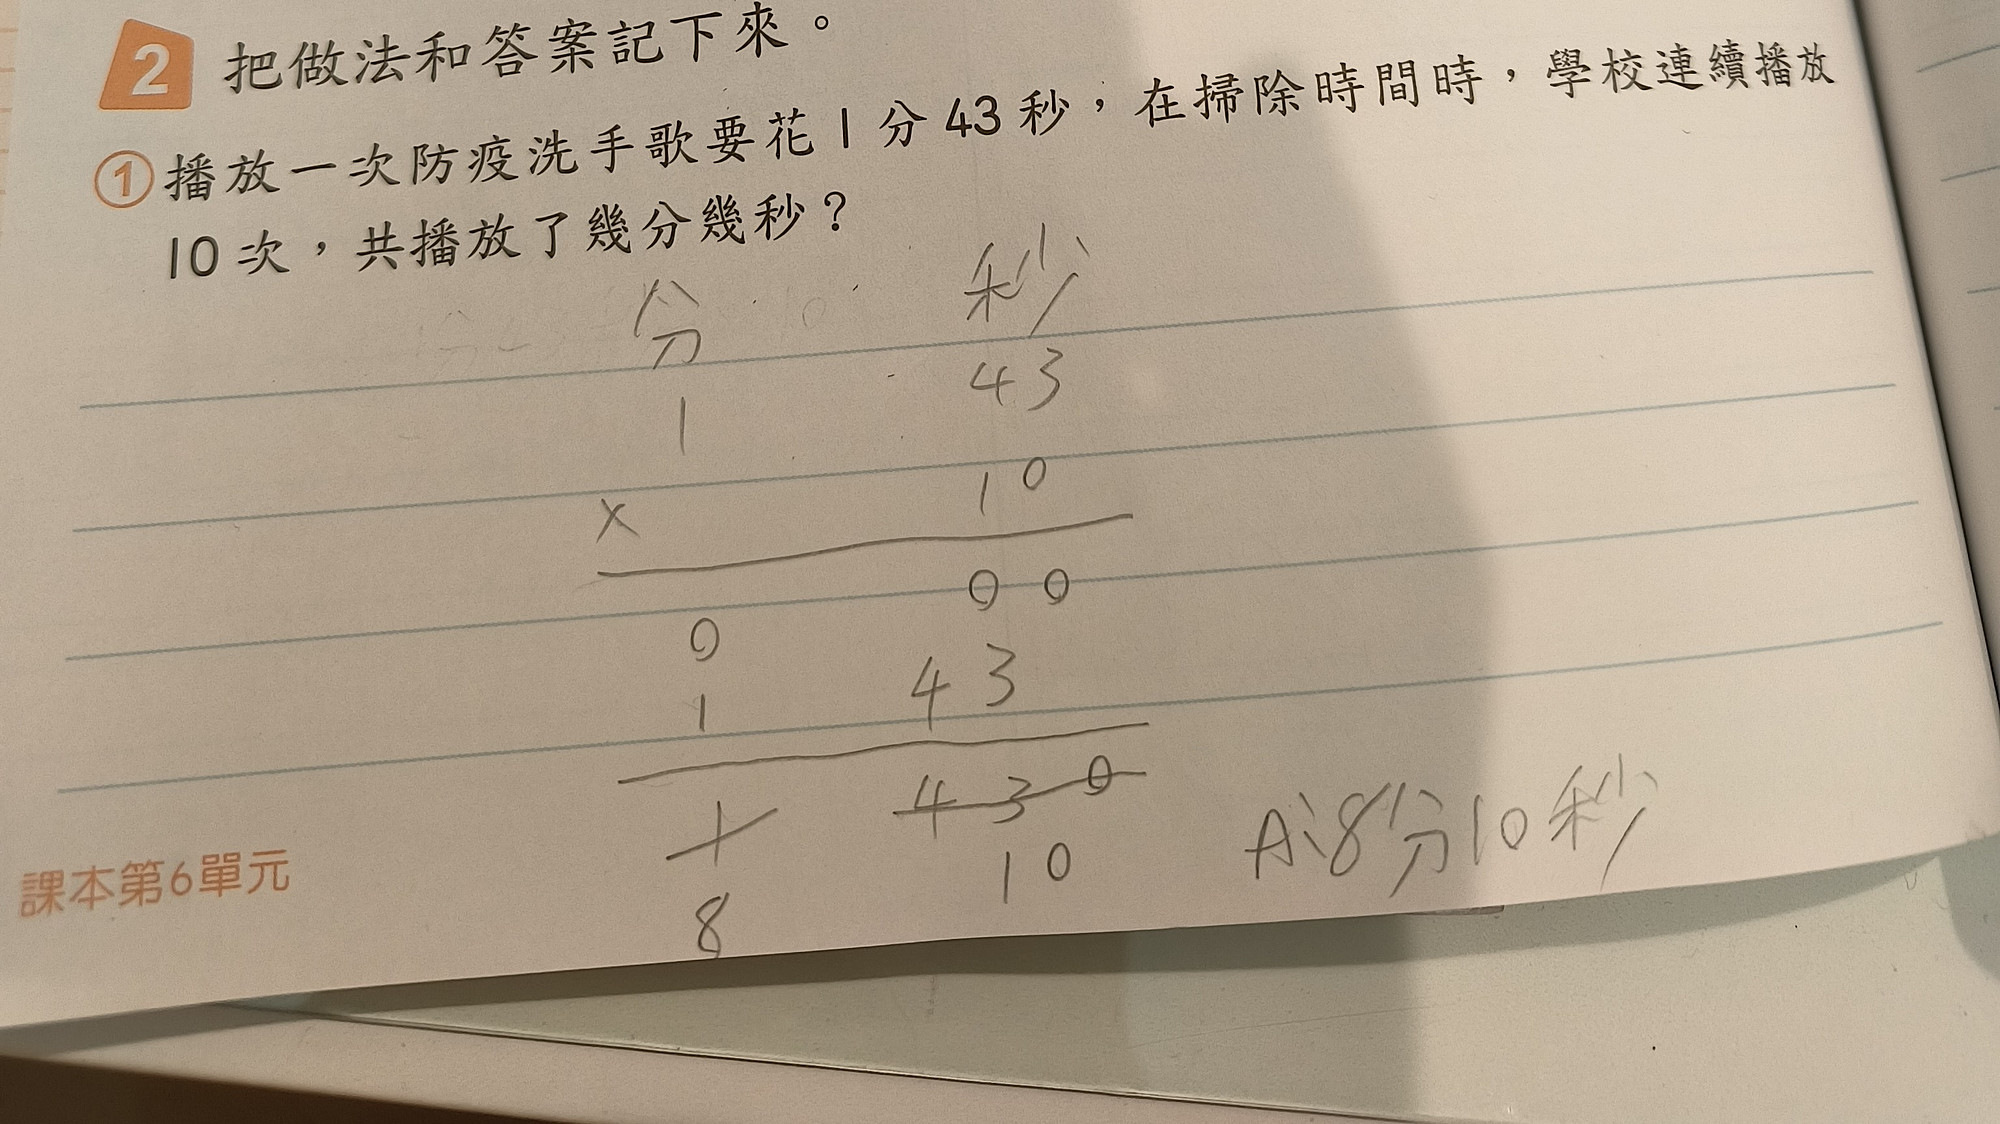 2 把做法和答案記下來。
① 播放一次防疫洗手歌要花1分43秒，在掃除時間時，學校連續播放
10次，共播放了幾分幾秒？
分 秒
1 43
× 10
0 00
1 43
1 430
8 10
A:8分10秒
課本第6單元